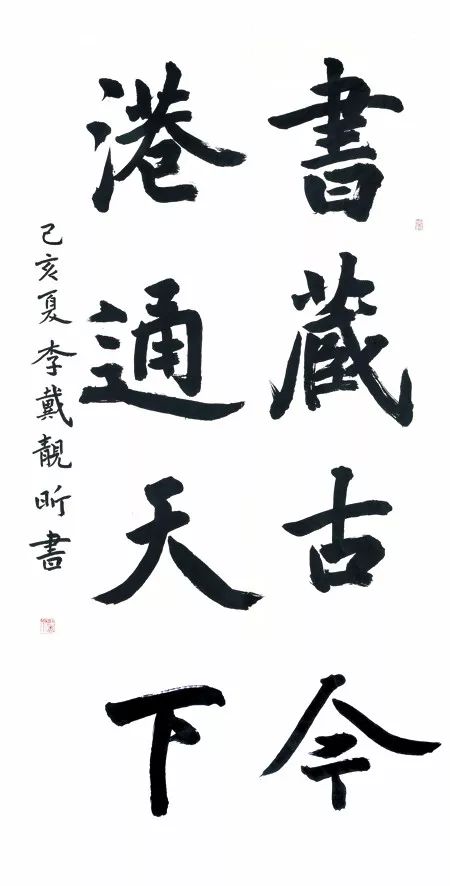 書藏古今
港通天下
己亥夏李戴靚昕書